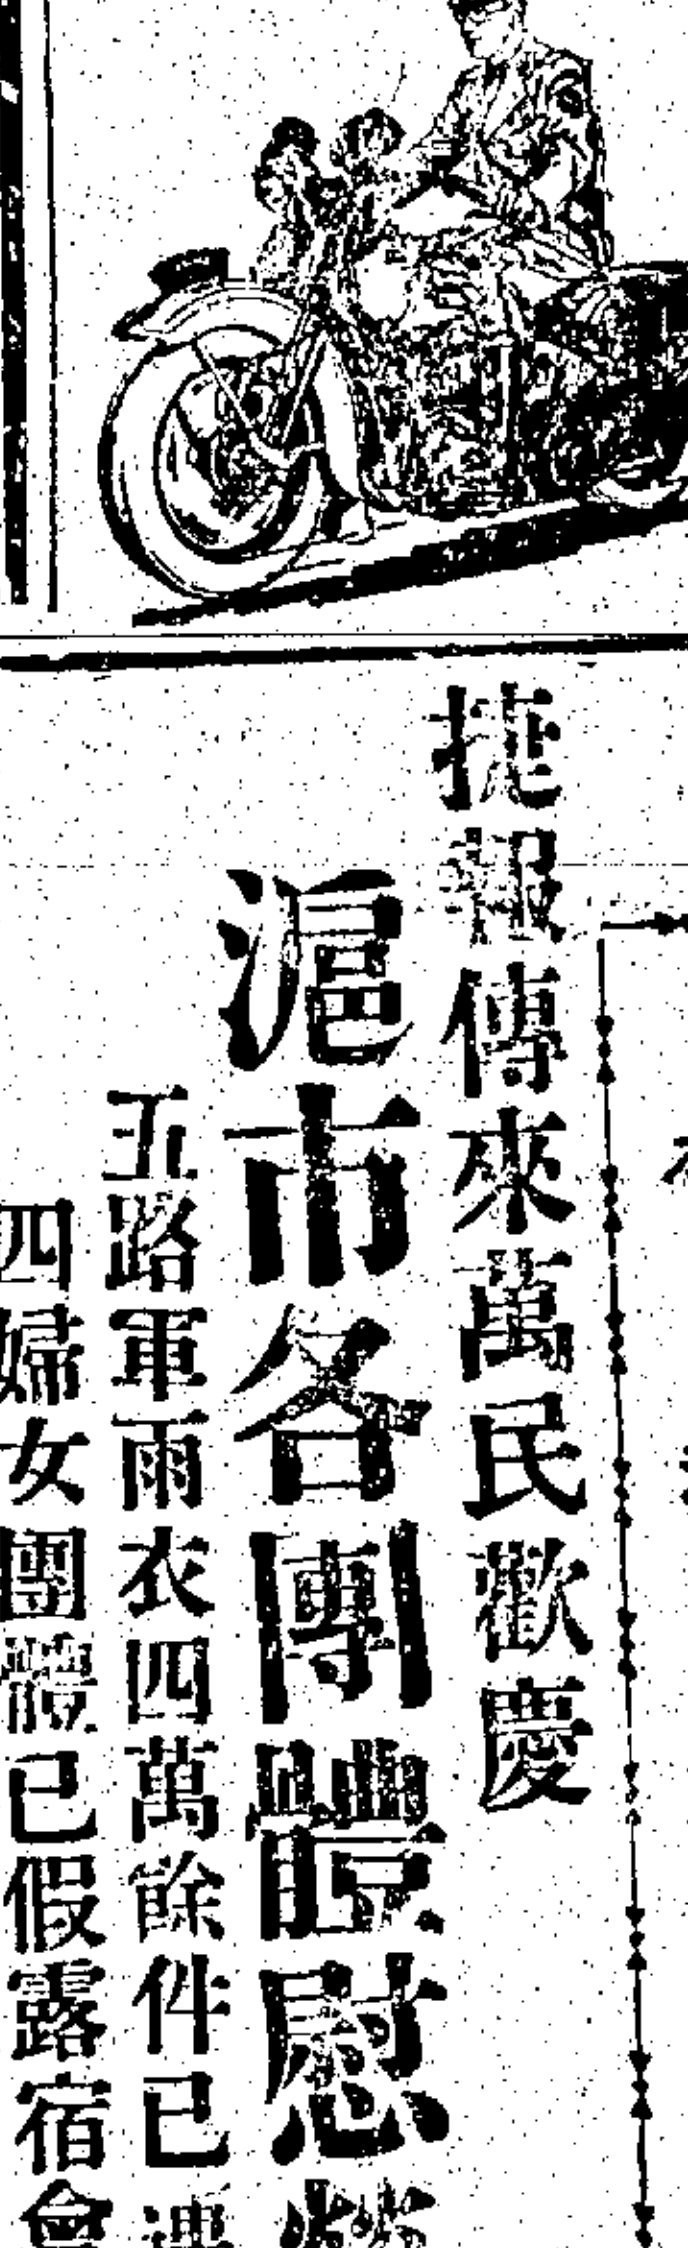 捷報傳來萬民歡慶
滬市各團體慰勞
五路軍雨衣四萬餘件已運
四婦女團體已假露宿會